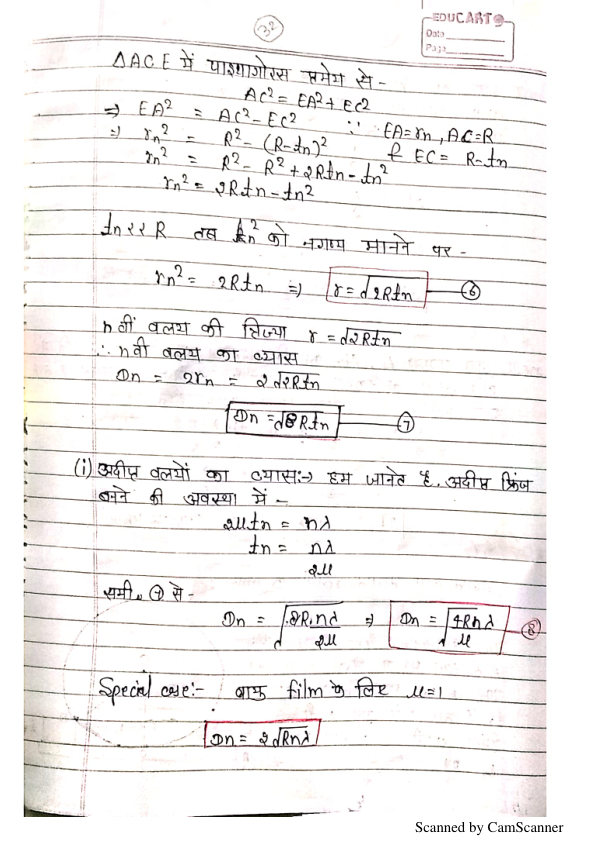 32
EDUCART
Date
Page
ΔACE में पाइथागोरस प्रमेय से -
AC² = EA² + EC²
⇒ EA² = AC² - EC² ∵ EA = rn, AC = R
⇒ rn² = R² - (R-tn)² & EC = R-tn
rn² = R² - R² + 2Rtn - tn²
rn² = 2Rtn - tn²
tn << R तब tn² को नगण्य मानने पर -
rn² = 2Rtn ⇒ r = √2Rtn - ⑥
n वीं वलय की त्रिज्या r = √2Rtn
∴ n वी वलय का व्यास
Dn = 2rn = 2√2Rtn
Dn = √8Rtn - ⑦
(i) अदीप्त वलयों का व्यास:→ हम जानते है, अदीप्त फ्रिंज
बनने की अवस्था में -
2μtn = nλ
tn = nλ/2μ
समी. ⑦ से -
Dn = √8R.nλ/2μ ⇒ Dn = √4Rnλ/μ - ⑧
Special case:- वायु film के लिए μ=1
Dn = 2√Rnλ
Scanned by CamScanner